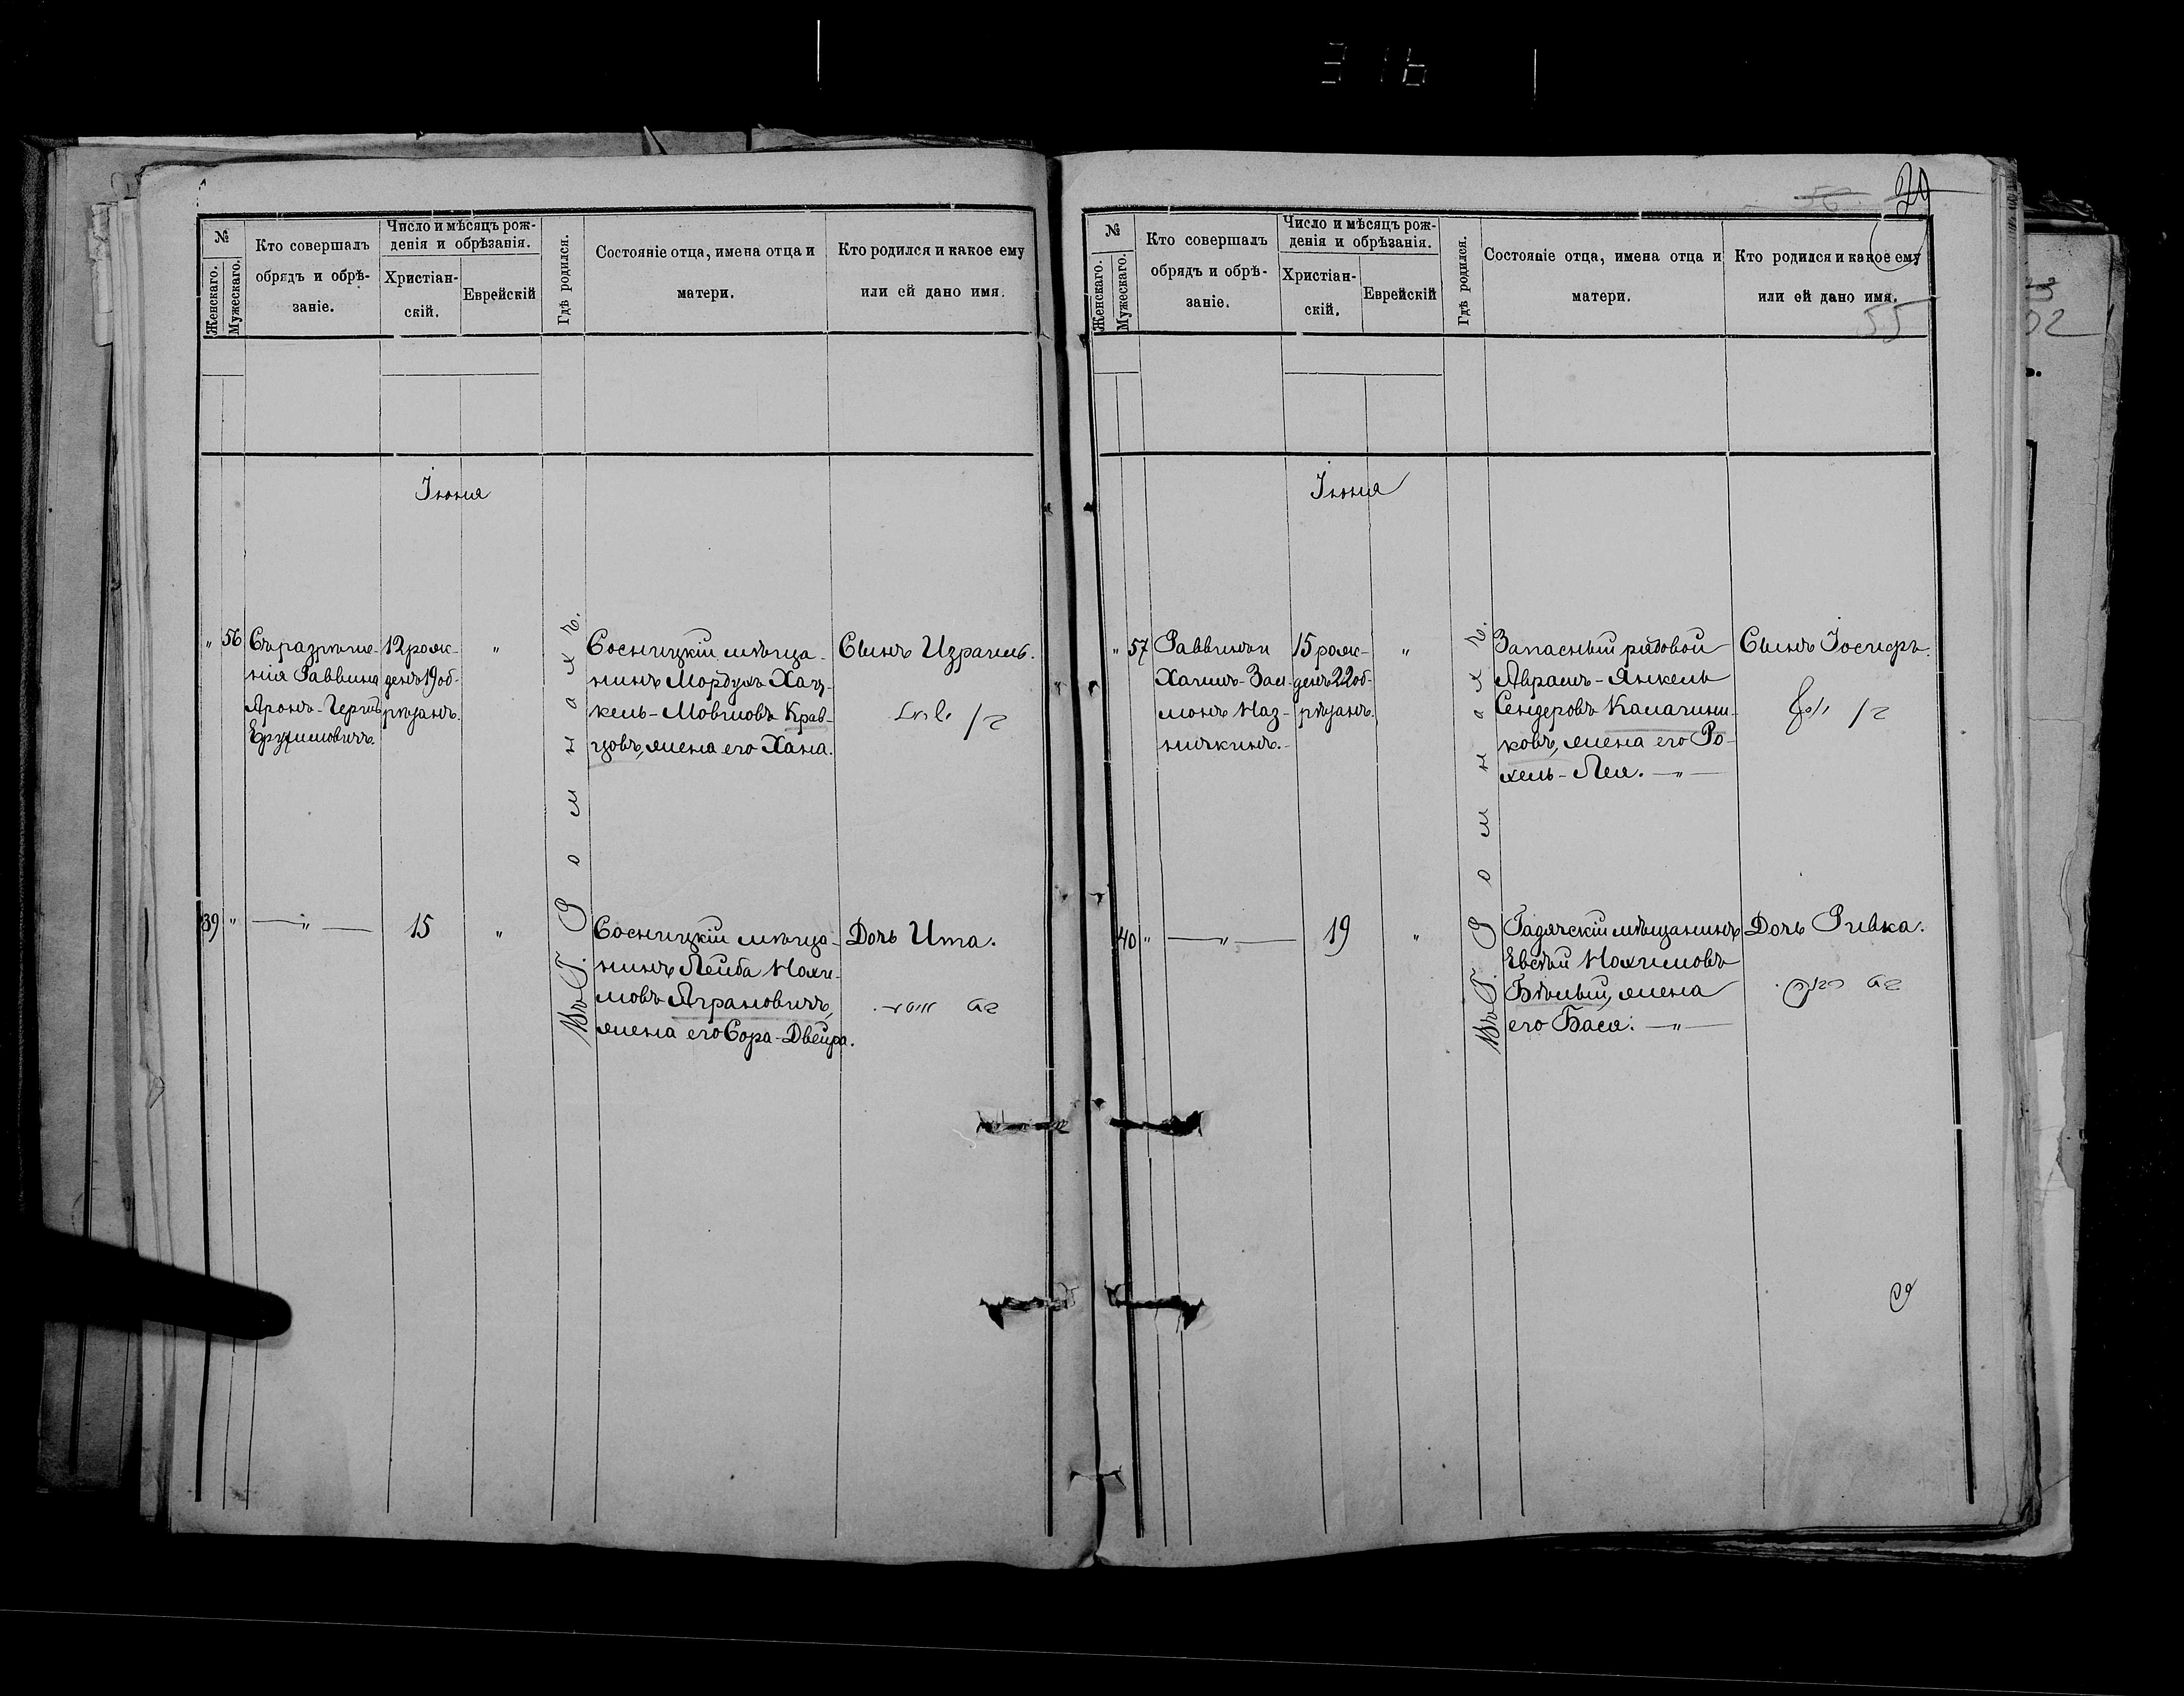 316
№
Женскаго.
Мужескаго.
Кто совершалъ
обрядъ и обрѣ-
заніе.
Число и мѣсяцъ рож-
денія и обрѣзанія.
Христіан-
скій.
Еврейскій
Гдѣ родился.
Состояніе отца, имена отца и
матери.
Кто родился и какое ему
или ей дано имя.
Іюня
" 56
Съ разрѣше-
нія Раввина
Аронъ-Гершъ
12 рож-
денъ 19 об-
рѣзанъ.
"
Въ Г. Ромнахъ.
Сосницкій мѣща-
нинъ Мордухъ Хац-
кель-Мовшовъ Крав-
цовъ, жена его Хана.
Сынъ Израиль.
בן
39 "
— " —
15
"
Сосницкій мѣща-
нинъ Лейба Нохи-
мовъ Аграновичъ,
жена его Сора-Двейра.
Дочь Ита.
בת
20
56.
№
Женскаго.
Мужескаго.
Кто совершалъ
обрядъ и обрѣ-
заніе.
Число и мѣсяцъ рож-
денія и обрѣзанія.
Христіан-
скій.
Еврейскій
Гдѣ родился.
Состояніе отца, имена отца и
матери.
Кто родился и какое ему
или ей дано имя.
55
Іюня
" 57
Раввинъ
Хаимъ-Зал-
монъ Наз-
15 рож-
денъ 22 об-
рѣзанъ.
"
Въ Г. Ромнахъ.
Запасный рядовой
Авраамъ-Янкель
Сендеровъ Калачни-
ковъ, жена его Ро-
хель-Лея. — " —
Сынъ Іосифъ.
בן
40 "
— " —
19
"
Гадячскій мѣщанинъ
Евсѣй Нохимовъ
Бѣлый, жена
его Бася. — " —
Дочь Ривка.
בת רבקה